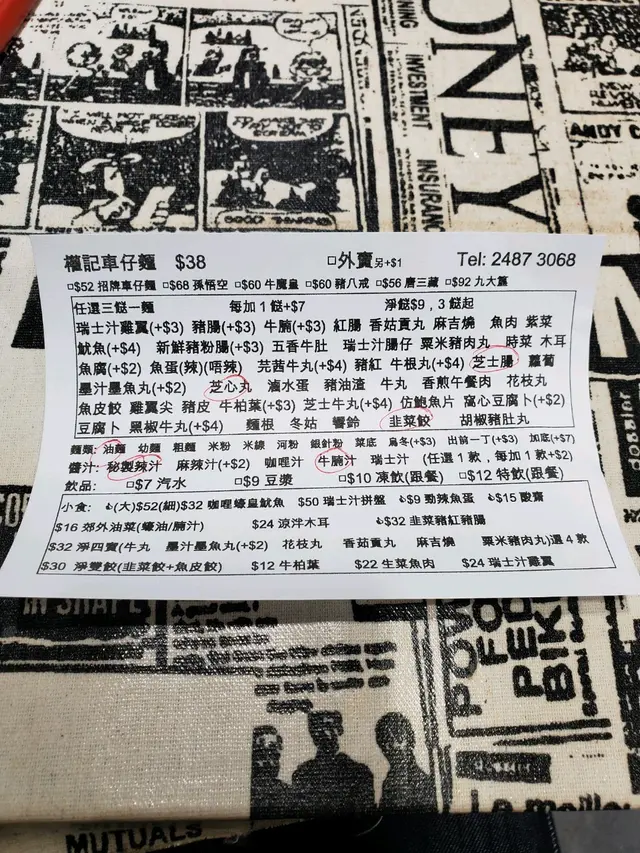 ONEY
NNING
INVESTMENT
INSURANC
ANDY C
權記車仔麵 $38 □外賣另+$1 Tel: 2487 3068
□$52 招牌車仔麵 □$68 孫悟空 □$60 牛魔皇 □$60 豬八戒 □$56 唐三藏 □$92 九大簋
任選三餸一麵 每加 1 餸+$7 淨餸$9 , 3 餸起
瑞士汁雞翼(+$3) 豬腸(+$3) 牛腩(+$3) 紅腸 香菇貢丸 麻吉燒 魚肉 紫菜
魷魚(+$4) 新鮮豬粉腸(+$3) 五香牛肚 瑞士汁腸仔 粟米豬肉丸 時菜 木耳
魚腐(+$2) 魚蛋(辣)(唔辣) 芫茜牛丸(+$4) 豬紅 牛根丸(+$4) 芝士腸 蘿蔔
墨汁墨魚丸(+$2) 芝心丸 滷水蛋 豬油渣 牛丸 香煎午餐肉 花枝丸
魚皮餃 雞翼尖 豬皮 牛柏葉(+$3) 芝士牛丸(+$4) 仿鮑魚片 窩心豆腐卜(+$2)
豆腐卜 黑椒牛丸(+$4) 麵根 冬姑 響鈴 韭菜餃 胡椒豬肚丸
麵類: 油麵 幼麵 粗麵 米粉 米線 河粉 銀針粉 菜底 烏冬(+$3) 出前一丁(+$3) 加底(+$7)
醬汁: 秘製辣汁 麻辣汁(+$2) 咖哩汁 牛腩汁 瑞士汁 (任選 1 款 , 每加 1 款+$2)
飲品: □$7 汽水 □$9 豆漿 □$10 凍飲(跟餐) □$12 特飲(跟餐)
小食: (大)$52(細)$32 咖哩蠔皇魷魚 $50 瑞士汁拼盤 $9 勁辣魚蛋 $15 酸齋
$16 郊外油菜(蠔油/腩汁) $24 涼拌木耳 $32 韭菜豬紅豬腸
$32 淨四寶(牛丸 墨汁墨魚丸(+$2) 花枝丸 香菇貢丸 麻吉燒 粟米豬肉丸)選 4 款
$30 淨雙餃(韭菜餃+魚皮餃) $12 牛柏葉 $22 生菜魚肉 $24 瑞士汁雞翼
IN SHAPE
MUTUALS